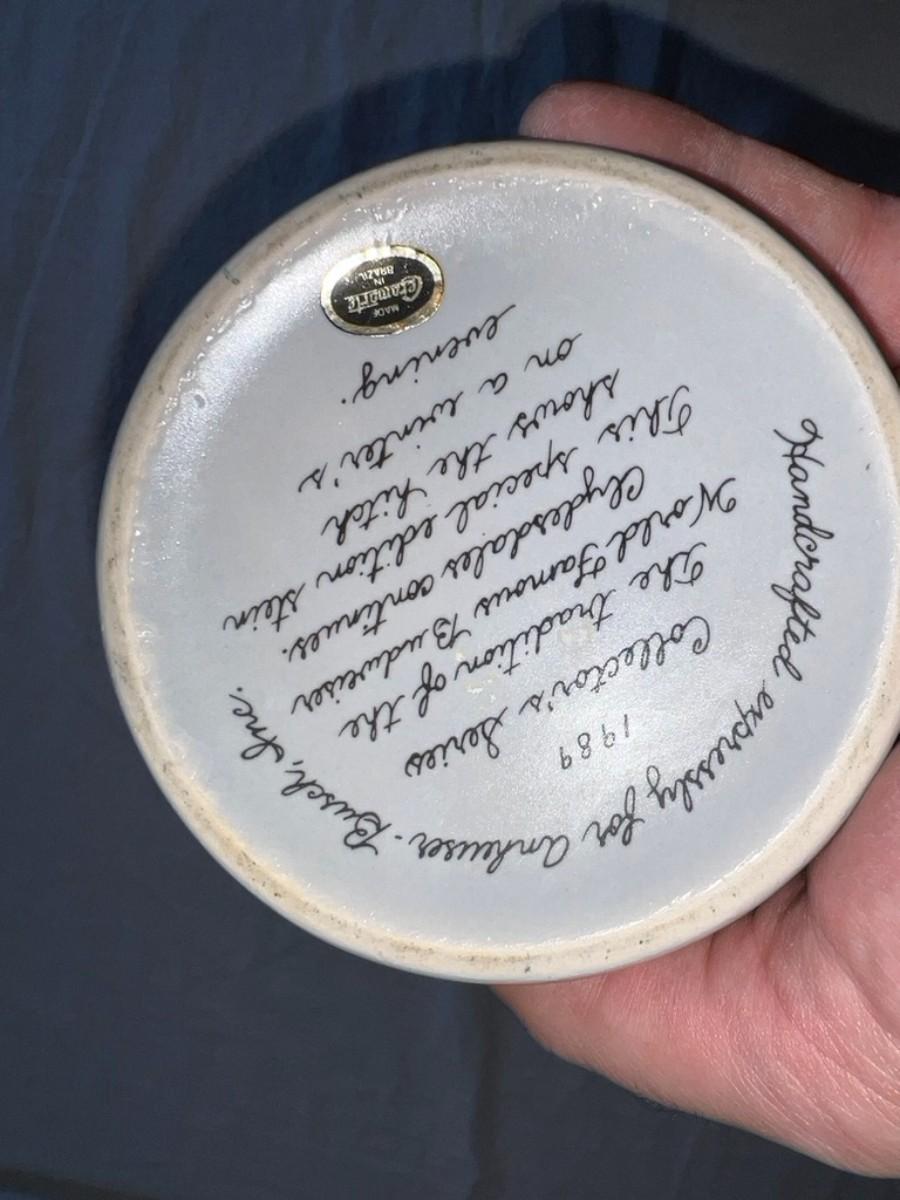 Handcrafted expressly for Anheuser-Busch, Inc.
1989
Collector's Series
The tradition of the
World Famous Budweiser
Clydesdales continues.
This special edition stein
shows the hitch
on a winter's
evening.
MADE
Ceramarte
IN
BRAZIL